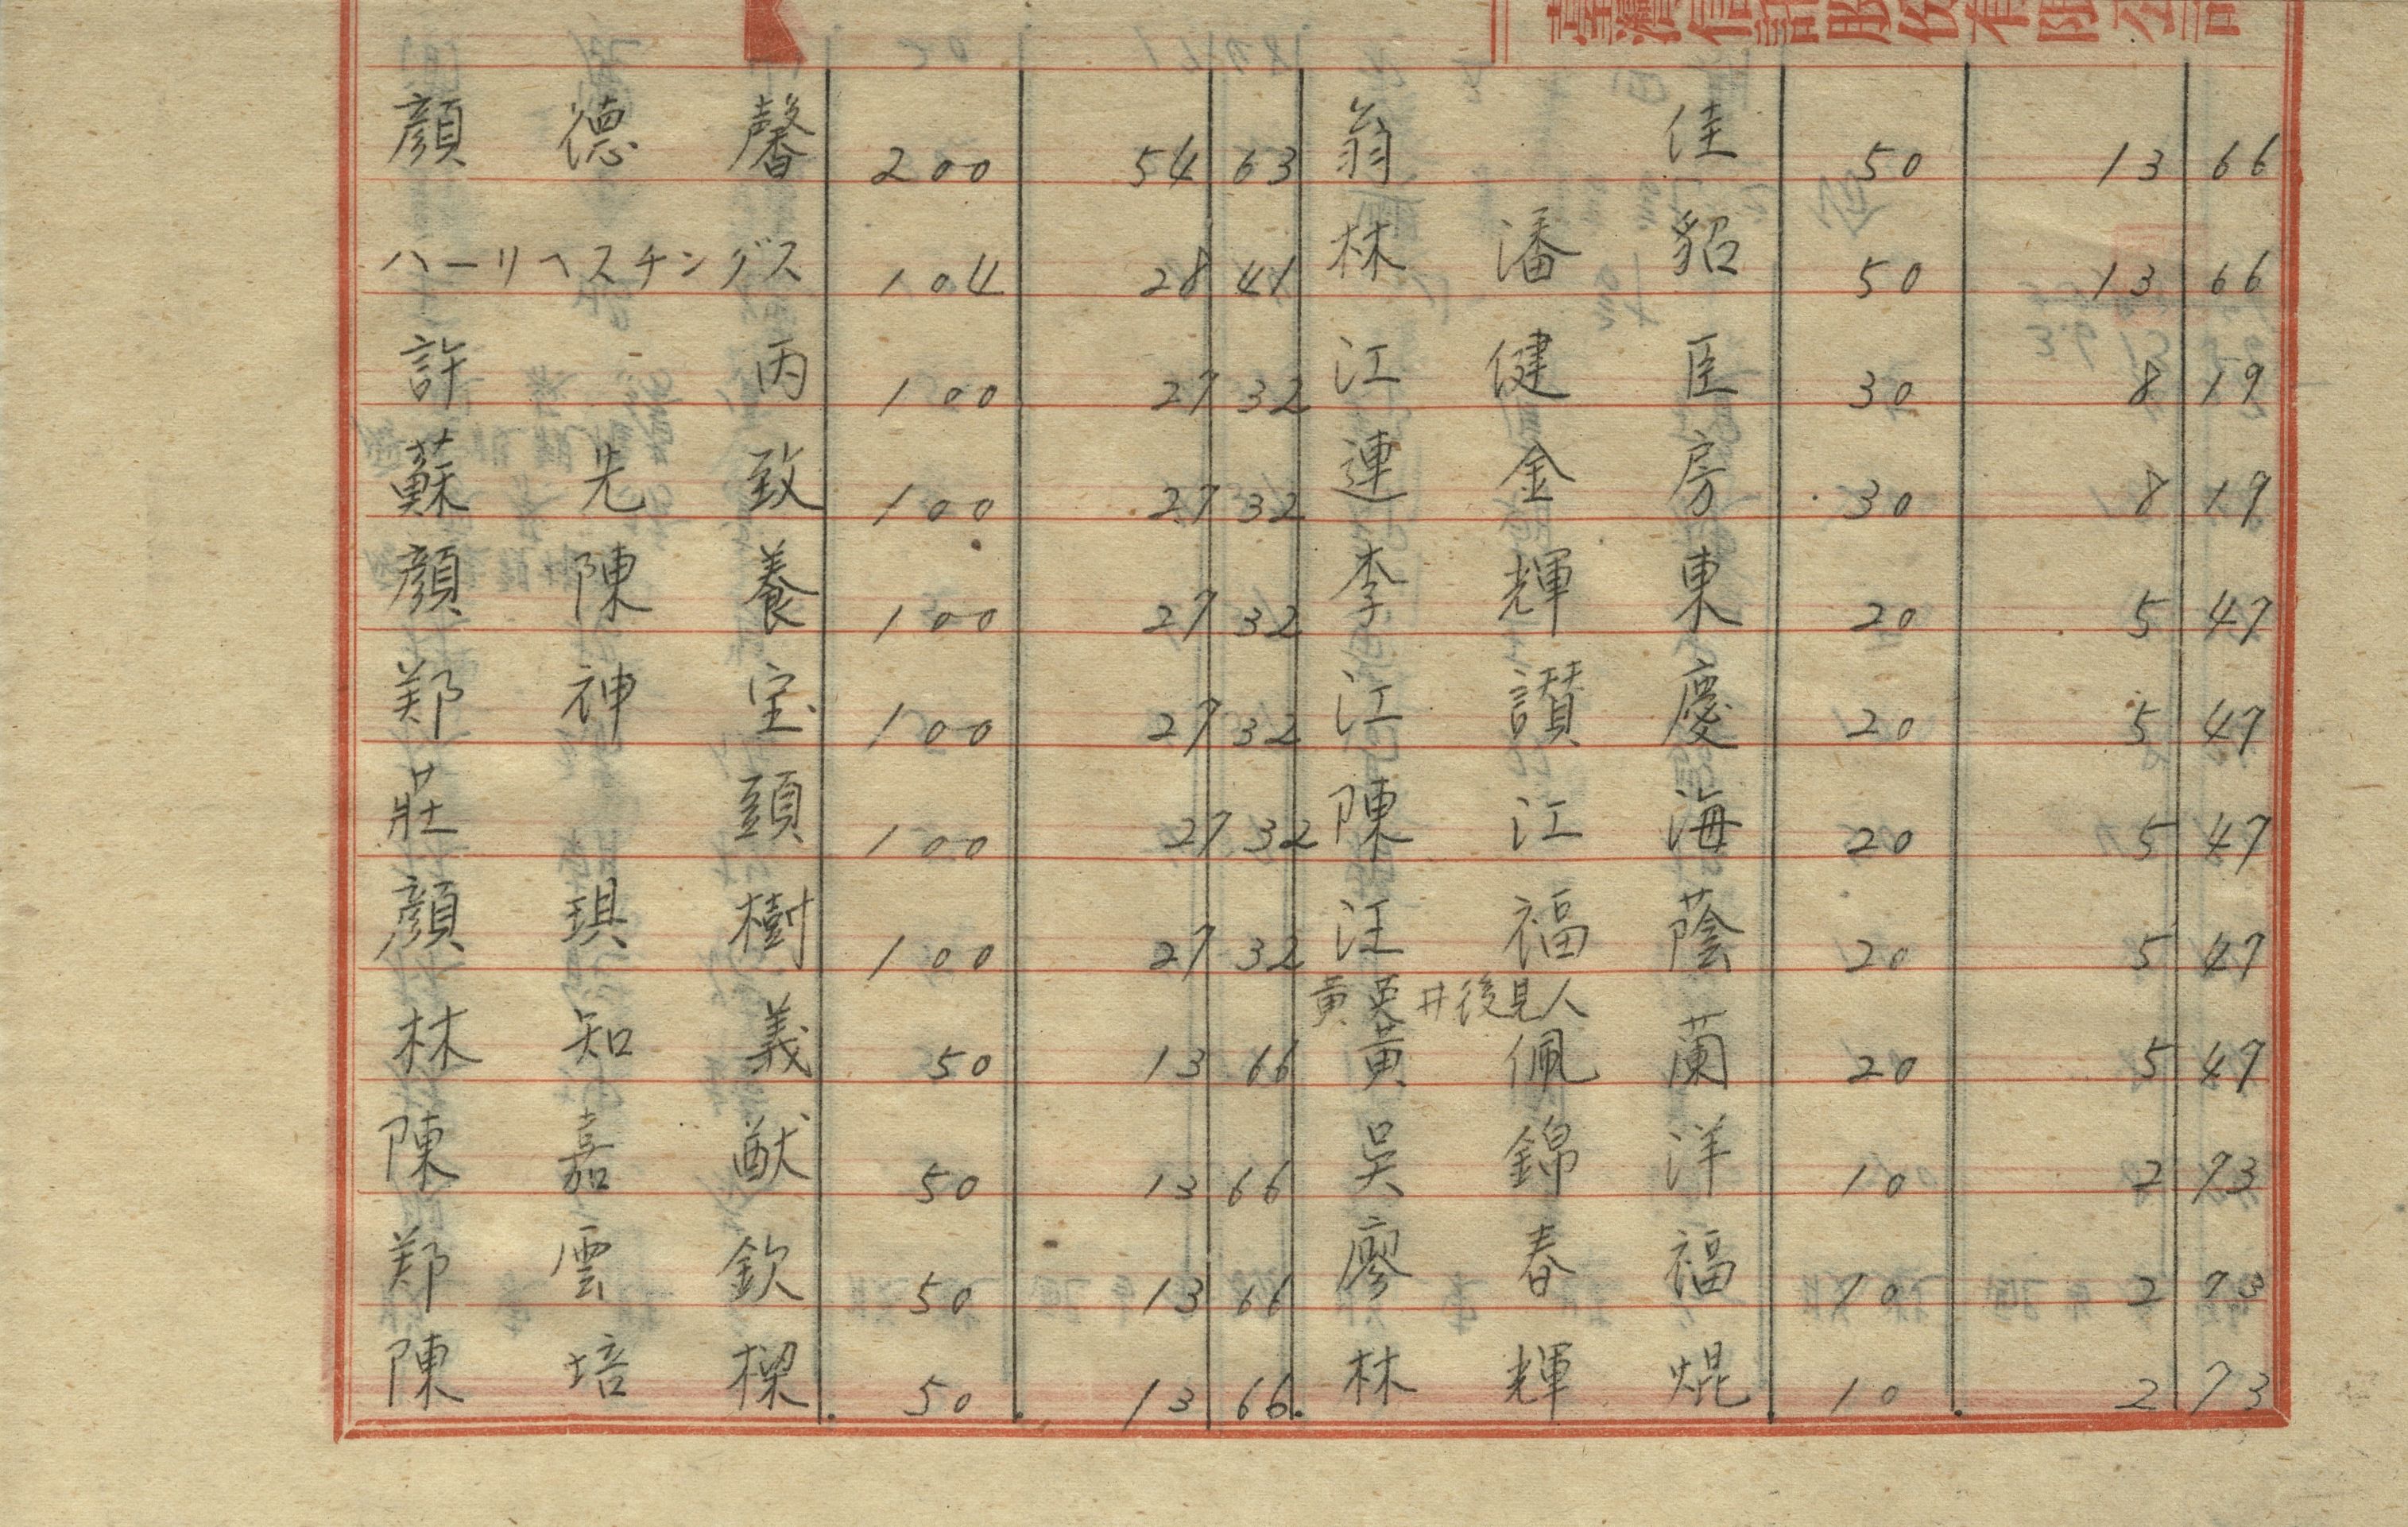 臺灣信託股份有限公司
顏德馨 200 54 63 翁佳 50 13 66
ハーリヘスチングス 104 28 41 林潘貂 50 13 66
許丙 100 27 32 江健臣 30 8 19
蘇先致 100 27 32 連金房 30 8 19
顏陳養 100 27 32 李輝東 20 5 47
郑神宝 100 27 32 江讃慶 20 5 47
莊頭 100 27 32 陳江海 20 5 47
顏琪樹 100 27 32 汪福蔭 20 5 47
黄英井後見人
林知義 50 13 66 黄佩蘭 20 5 47
陳嘉猷 50 13 66 吳錦洋 10 2 73
郑雲欽 50 13 66 廖春福 10 2 73
陳培樑 50 13 66 林輝焜 10 2 73